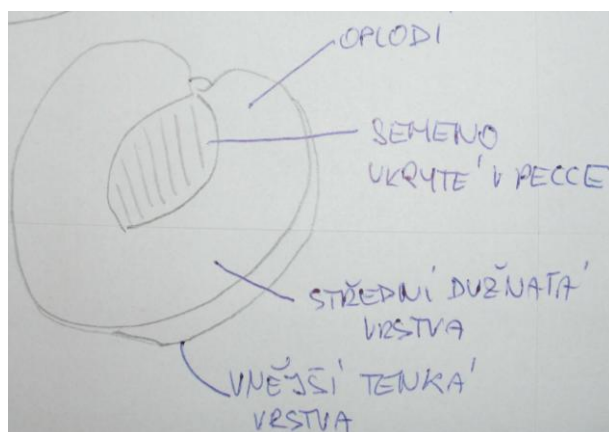 OPLODI
SEMENO
UKRYTÉ V PECCE
STŘEDNÍ DUŽNATÁ
VRSTVA
VNĚJŠÍ TENKÁ
VRSTVA